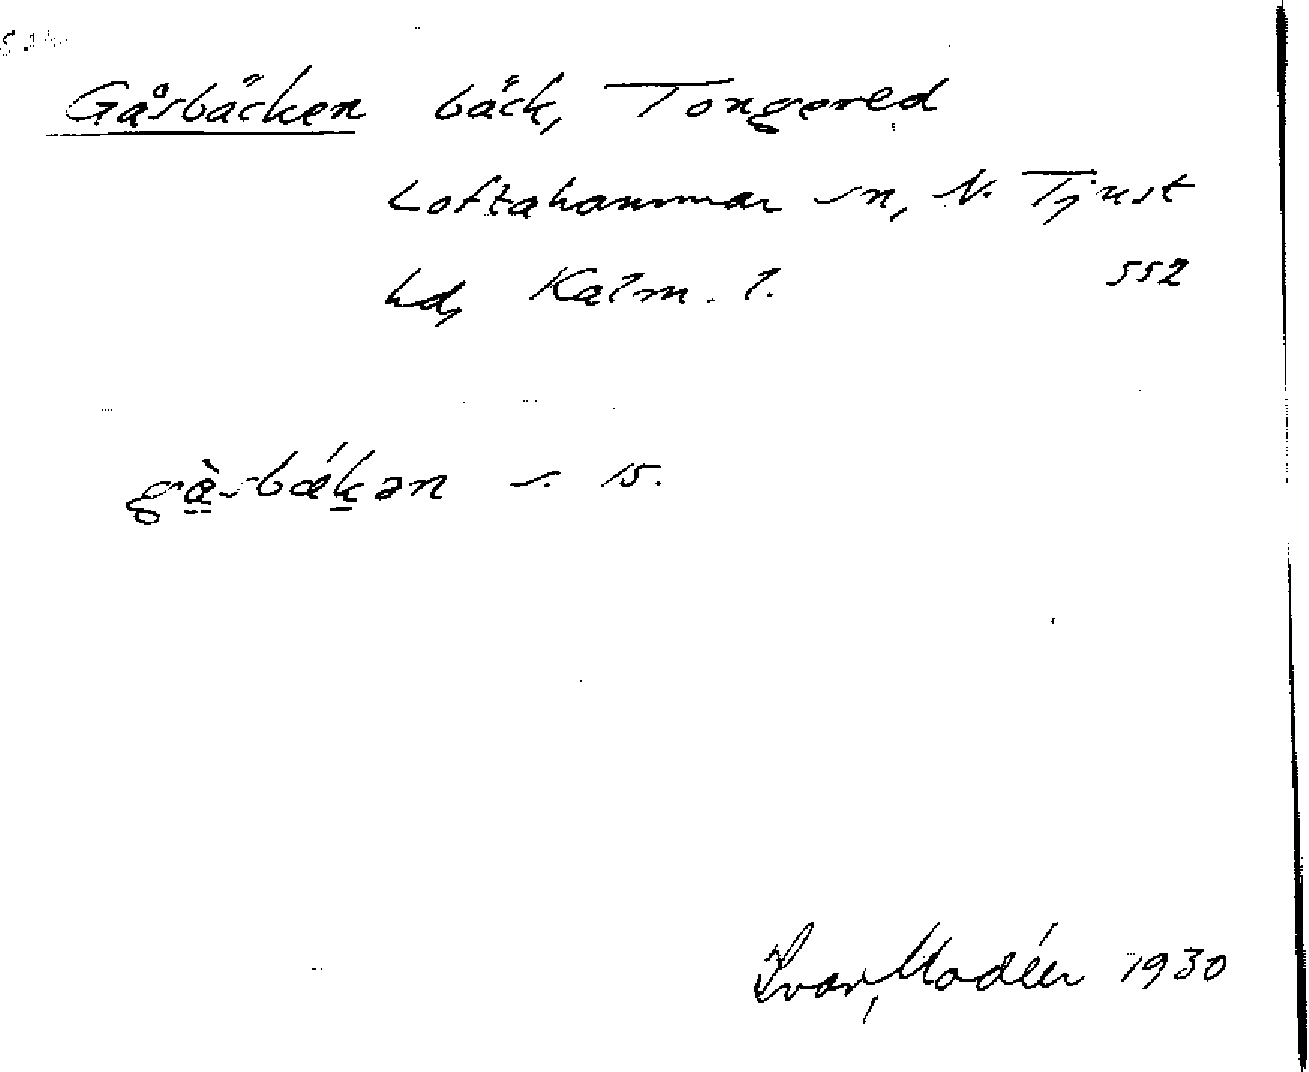 Gåsbäcken bäck, Tongered
Loftahammar sn, N. Tjust
hd, Kalm. l. 552
gàsbǽkən s. 15.
Ivar Modéer 1930